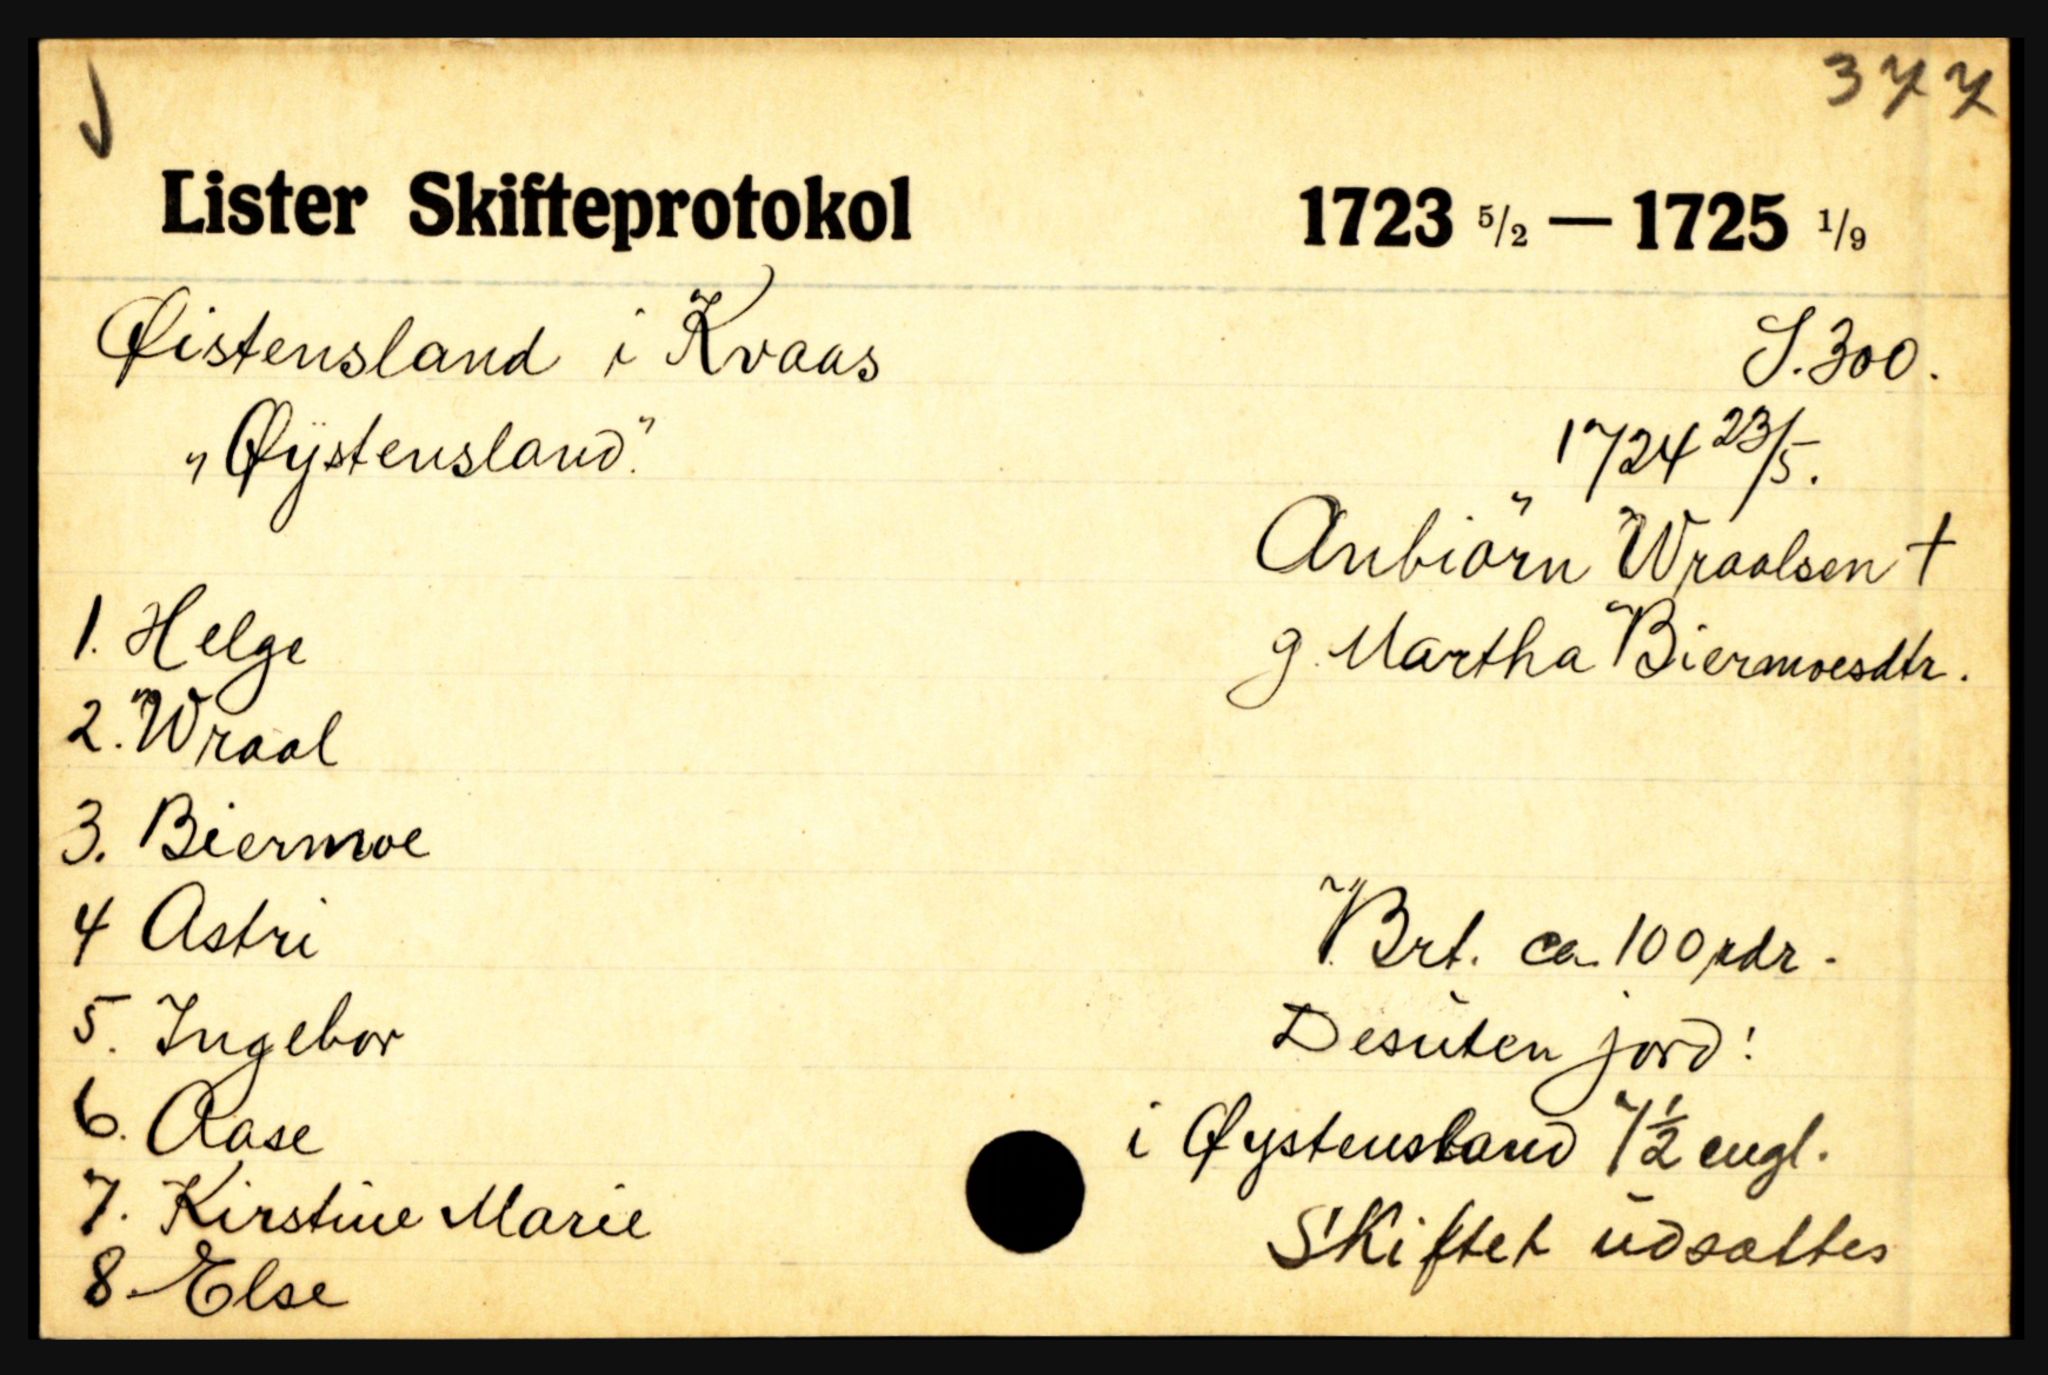 377
Lister Skifteprotokol 1723 5/2 — 1725 1/9
Øistensland i Kvaas S. 300.
„Øÿstensland." 1724 23/5.
Anbiörn Wraalsen †
1. Helge g. Martha Biermoesdtr.
2. Wraal
3. Biermoe
4 Astri Brt. ca. 100 rdr.
5. Ingebor Desuten jord:
6. Aase i Øystensland 7½ engl.
7. Kirstine Marie Skiftet udsættes
8. Else